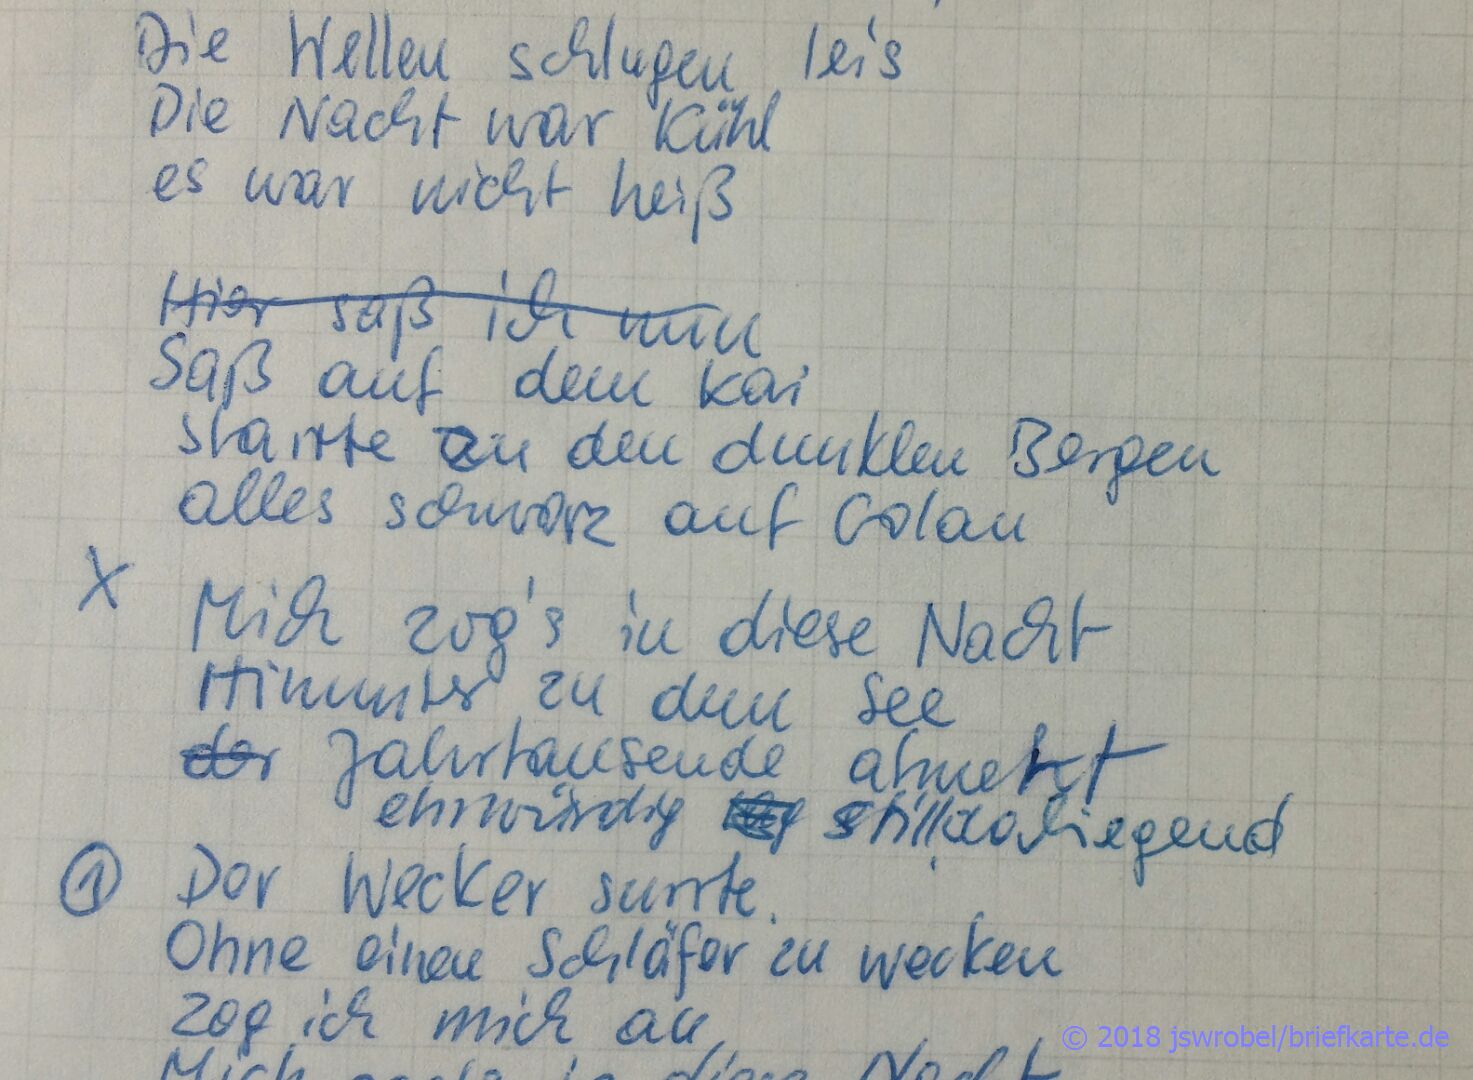 Die Wellen schlugen leis
Die Nacht war kühl
es war nicht heiß
Hier saß ich nun
Saß auf dem Kai
starrte zu den dunklen Bergen
alles schwarz auf Golan
X Mich zog's in diese Nacht
Hinunter zu dem See
der Jahrtausende atmet
ehrwürdig still daliegend
① Der Wecker surrte.
Ohne einen Schläfer zu wecken
zog ich mich an,
Mich in diese Nacht
© 2018 jswrobel/briefkarte.de